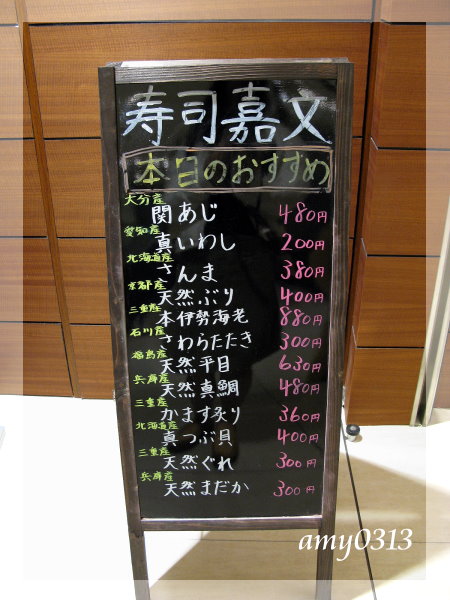 寿司嘉文
本日のおすすめ
大分産
関あじ 480円
愛知産
真いわし 200円
北海道産
さんま 380円
京都産
天然ぶり 400円
三重産
本伊勢海老 880円
石川産
さわらたたき 300円
福島産
天然平目 630円
兵庫産
天然真鯛 480円
三重産
かます炙り 360円
北海道産
真つぶ貝 400円
三重産
天然ぐれ 300円
兵庫産
天然まだか 300円
amy0313